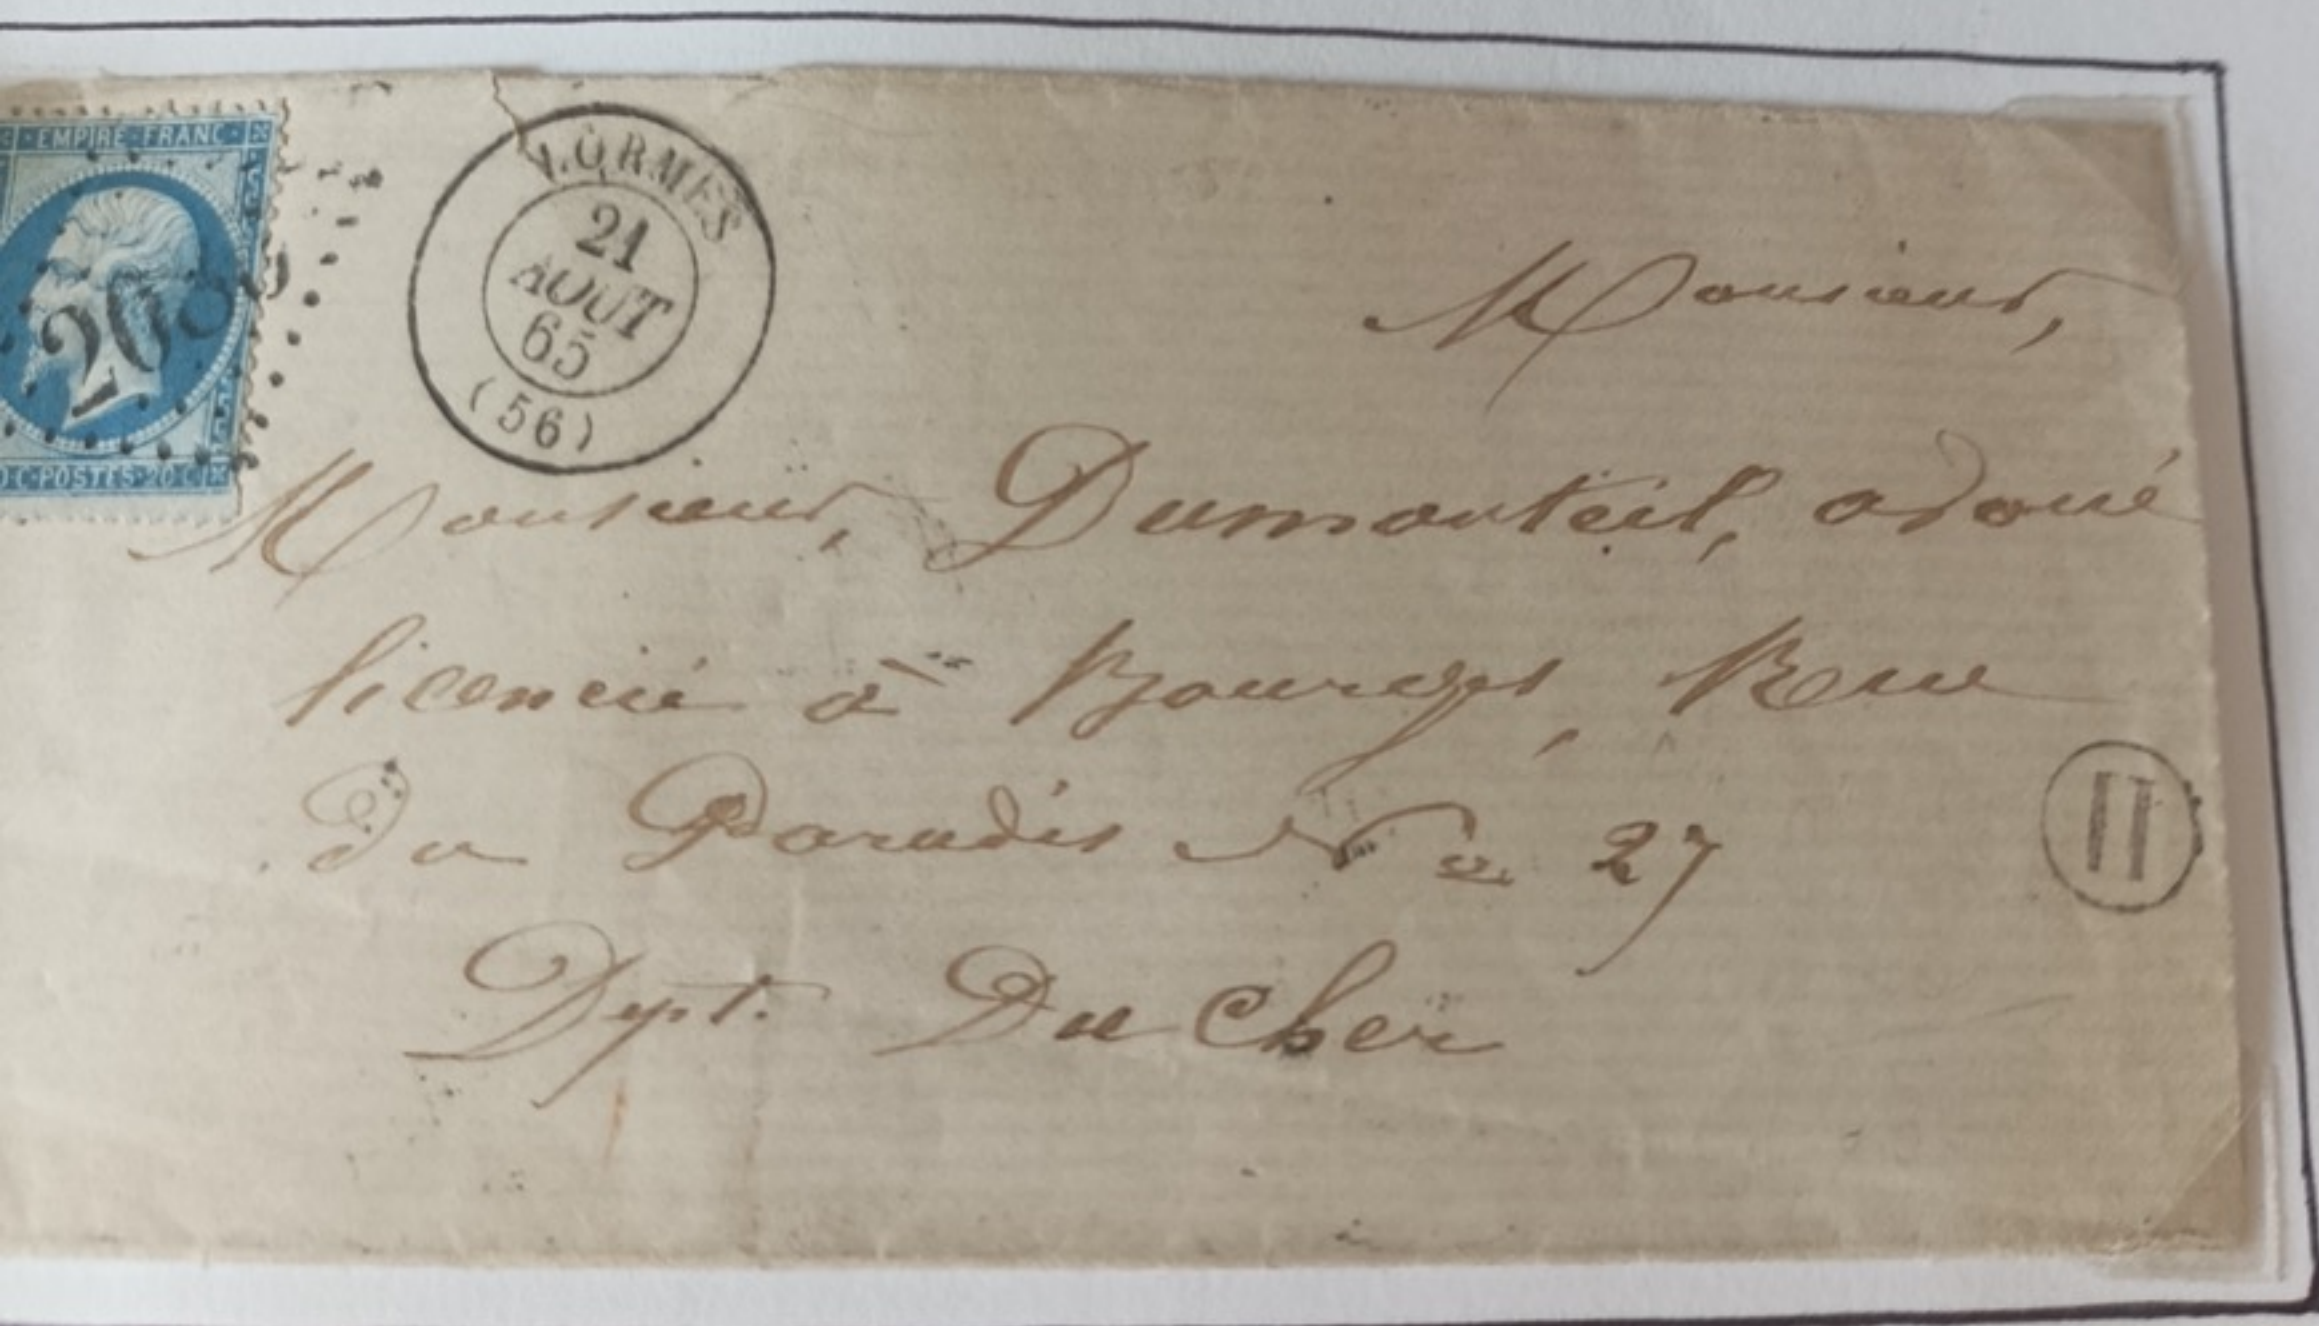 EMPIRE FRANC
208
20 C POSTES 20 C
LORMES
21
AOUT
65
(56)
Monsieur,
Monsieur, Dumonteil, avoué
licencié à Bourges, Rue
du Paradis No 27
Dept. Du Cher